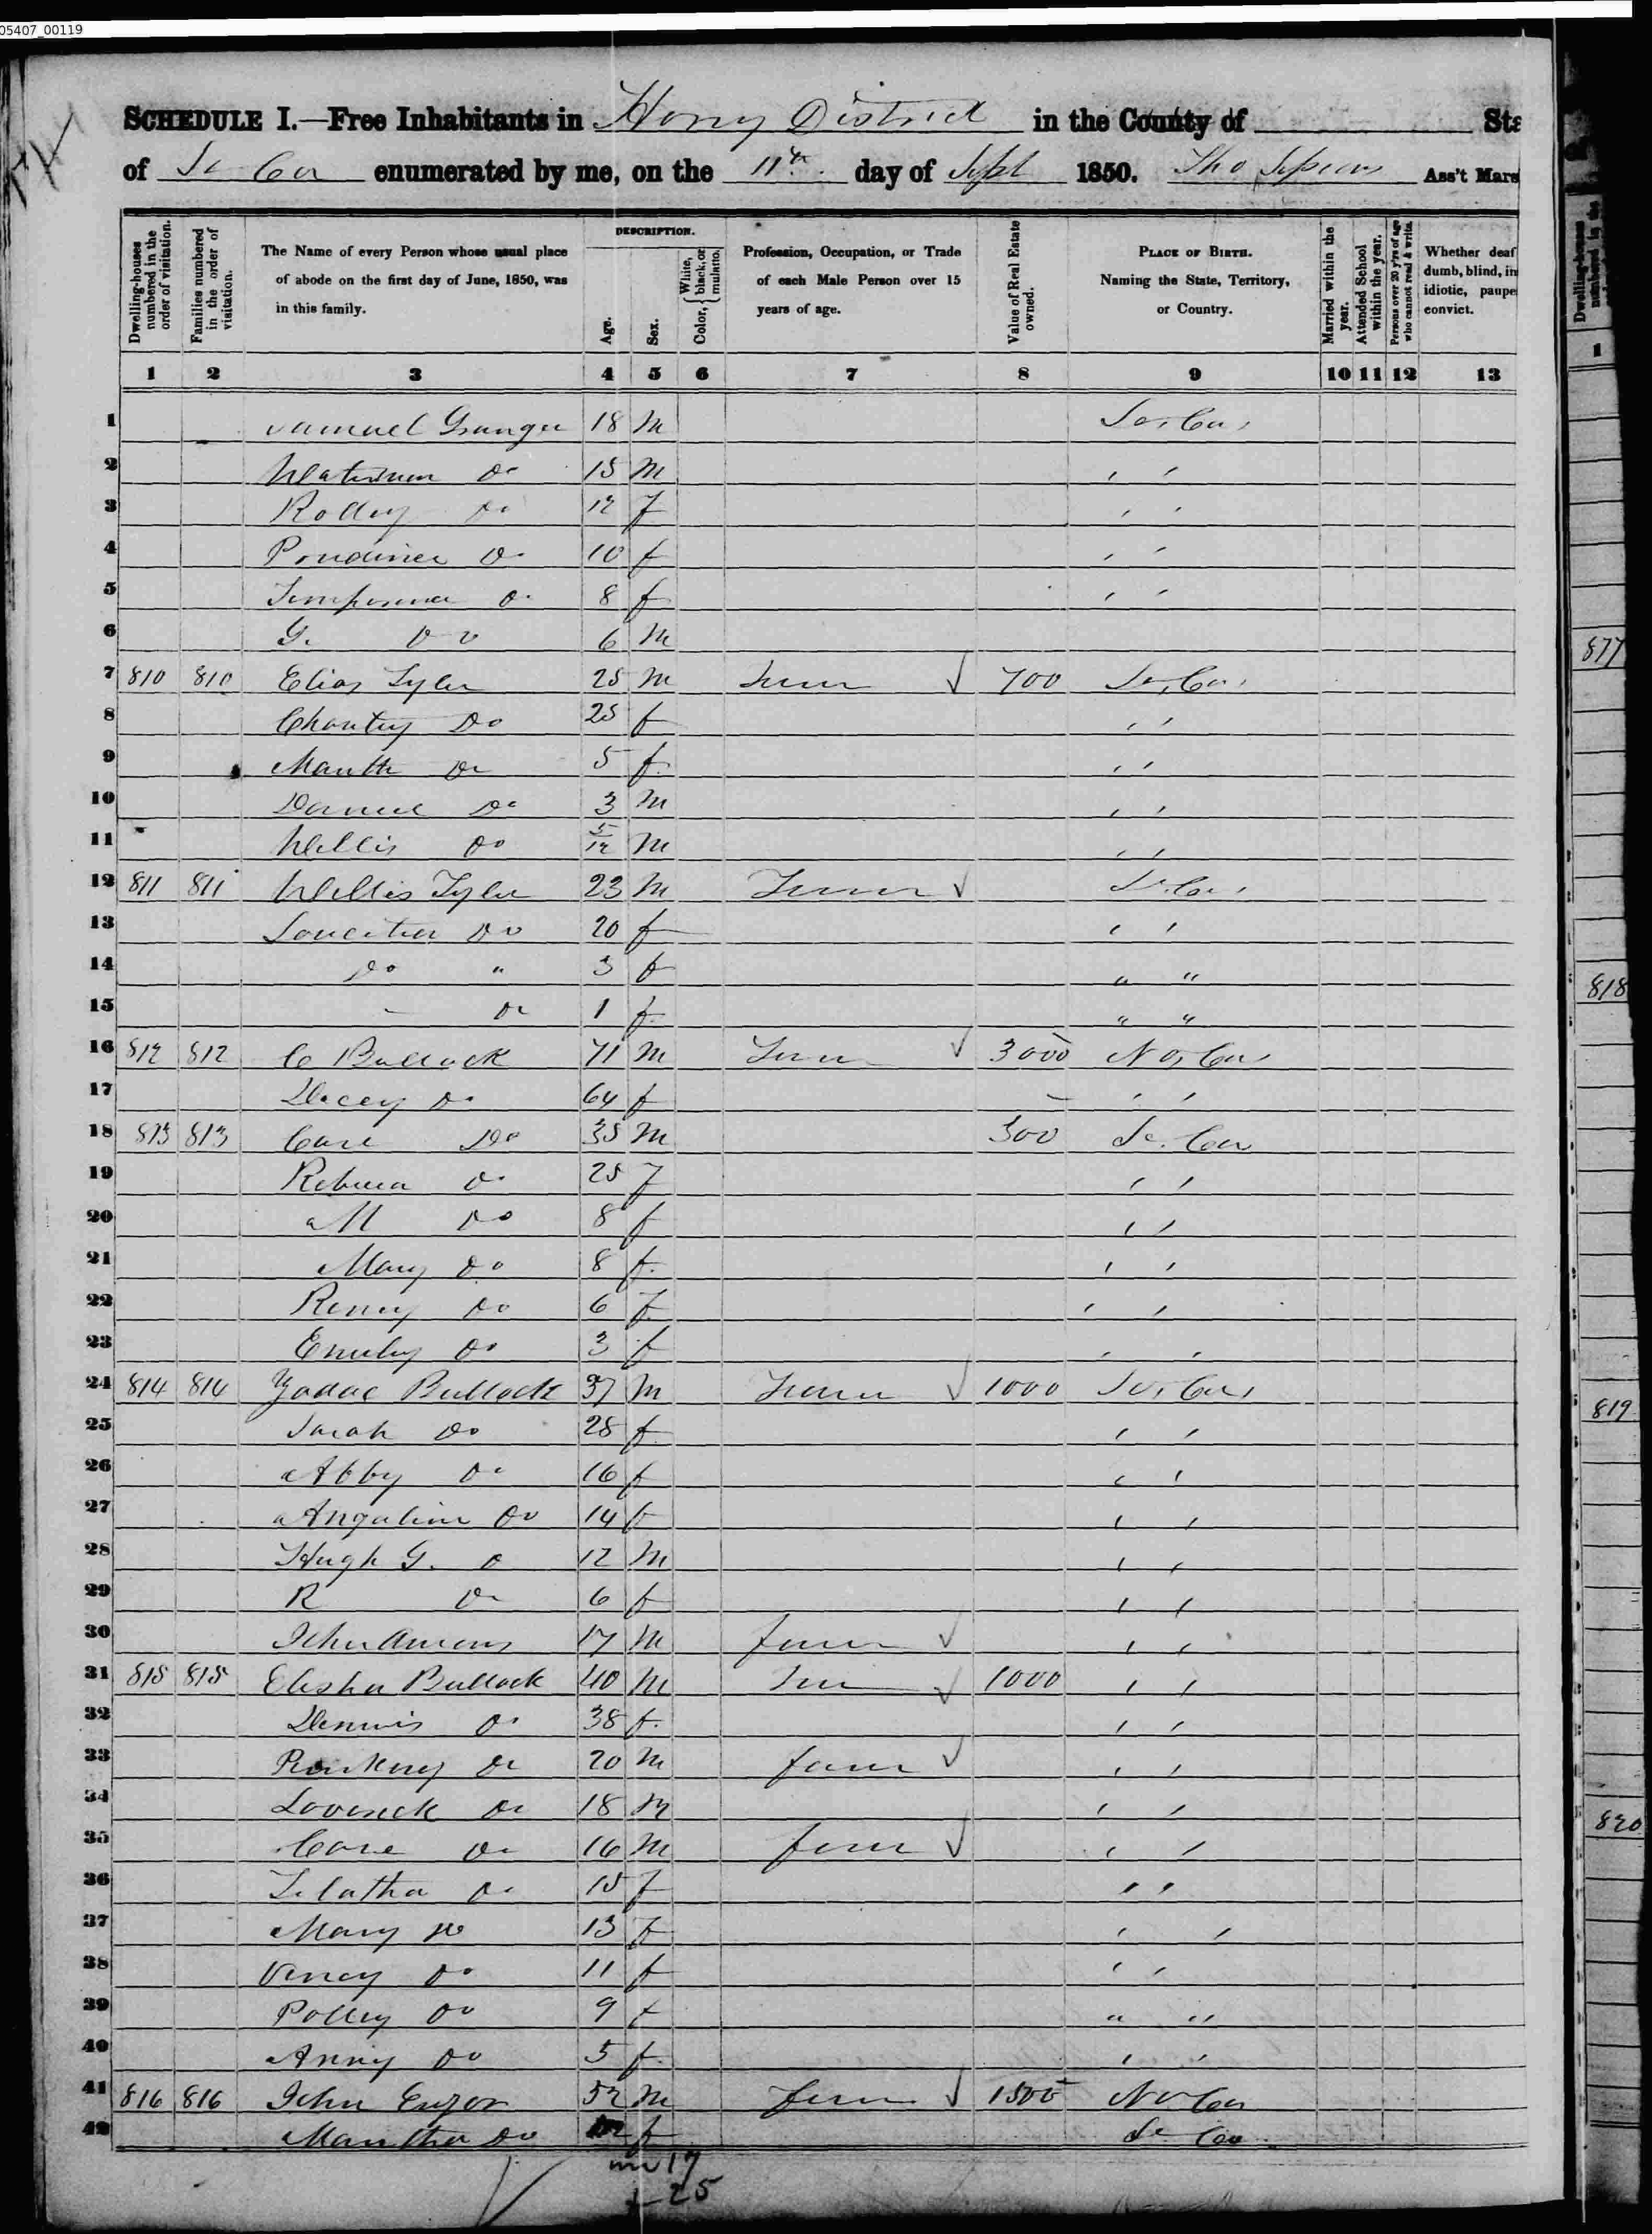 05407_00119
SCHEDULE I.—Free Inhabitants in Horry District in the County of Sta
of So Car enumerated by me, on the 11th. day of Sept 1850. Tho Ass't Mars
Dwelling-houses numbered in the order of visitation.
Families numbered in the order of visitation.
The Name of every Person whose usual place of abode on the first day of June, 1850, was in this family.
DESCRIPTION.
Age.
Sex.
Color, { White, black, or mulatto.
Profession, Occupation, or Trade of each Male Person over 15 years of age.
Value of Real Estate owned.
PLACE OF BIRTH. Naming the State, Territory, or Country.
Married within the year.
Attended School within the year.
Persons over 20 y'rs of age who cannot read & write.
Whether deaf dumb, blind, in idiotic, paupe convict.
1 2 3 4 5 6 7 8 9 10 11 12 13
1 Samuel Granger 18 M So, Car,
2 Do 15 M , ,
3 Do 12 f , ,
4 Do 10 f , ,
5 Do 8 f , ,
6 G. Do 6 M
7 810 810 Elias Tyler 25 M Farm √ 700 So, Car,
8 Do 25 f , ,
9 Do 5 f. , ,
10 Daniel Do 3 M , ,
11 Willis Do 5/12 M , ,
12 811 811 Willis Tyler 23 M Farm √ So. Car,
13 Do 20 f , ,
14 Do " 3 f " "
15 Do 1 f. " "
16 812 812 C Bullock 71 M Farm √ 3000 No, Car,
17 Do 64 f , ,
18 813 813 Do 35 M 300 So. Car
19 Rebecca Do 25 f , ,
20 M Do 8 f , ,
21 Mary Do 8 f. , ,
22 Do 6 f. , ,
23 Emily Do 3 f , ,
24 814 814 Zadac Bullock 37 M Farm √ 1000 So, Car,
25 Sarah Do 28 f , ,
26 Abby Do 16 f , ,
27 Angaline Do 14 f , ,
28 Hugh G. Do 12 M , ,
29 R Do 6 f , ,
30 John 17 M farm √ , ,
31 815 815 Elisha Bullock 40 M Farm √ 1000 , ,
32 Dennis Do 38 f. , ,
33 Do 20 M farm √ , ,
34 Do 18 M , ,
35 Do 16 M farm √ , ,
36 Do 15 f , ,
37 Mary Do 13 f , ,
38 Do 11 f , ,
39 Polley Do 9 f " "
40 Anny Do 5 f. , ,
41 816 816 John 52 M farm √ 1500 No Car
42 Martha Do f So Car
m 17
f 25
877
818
819
820